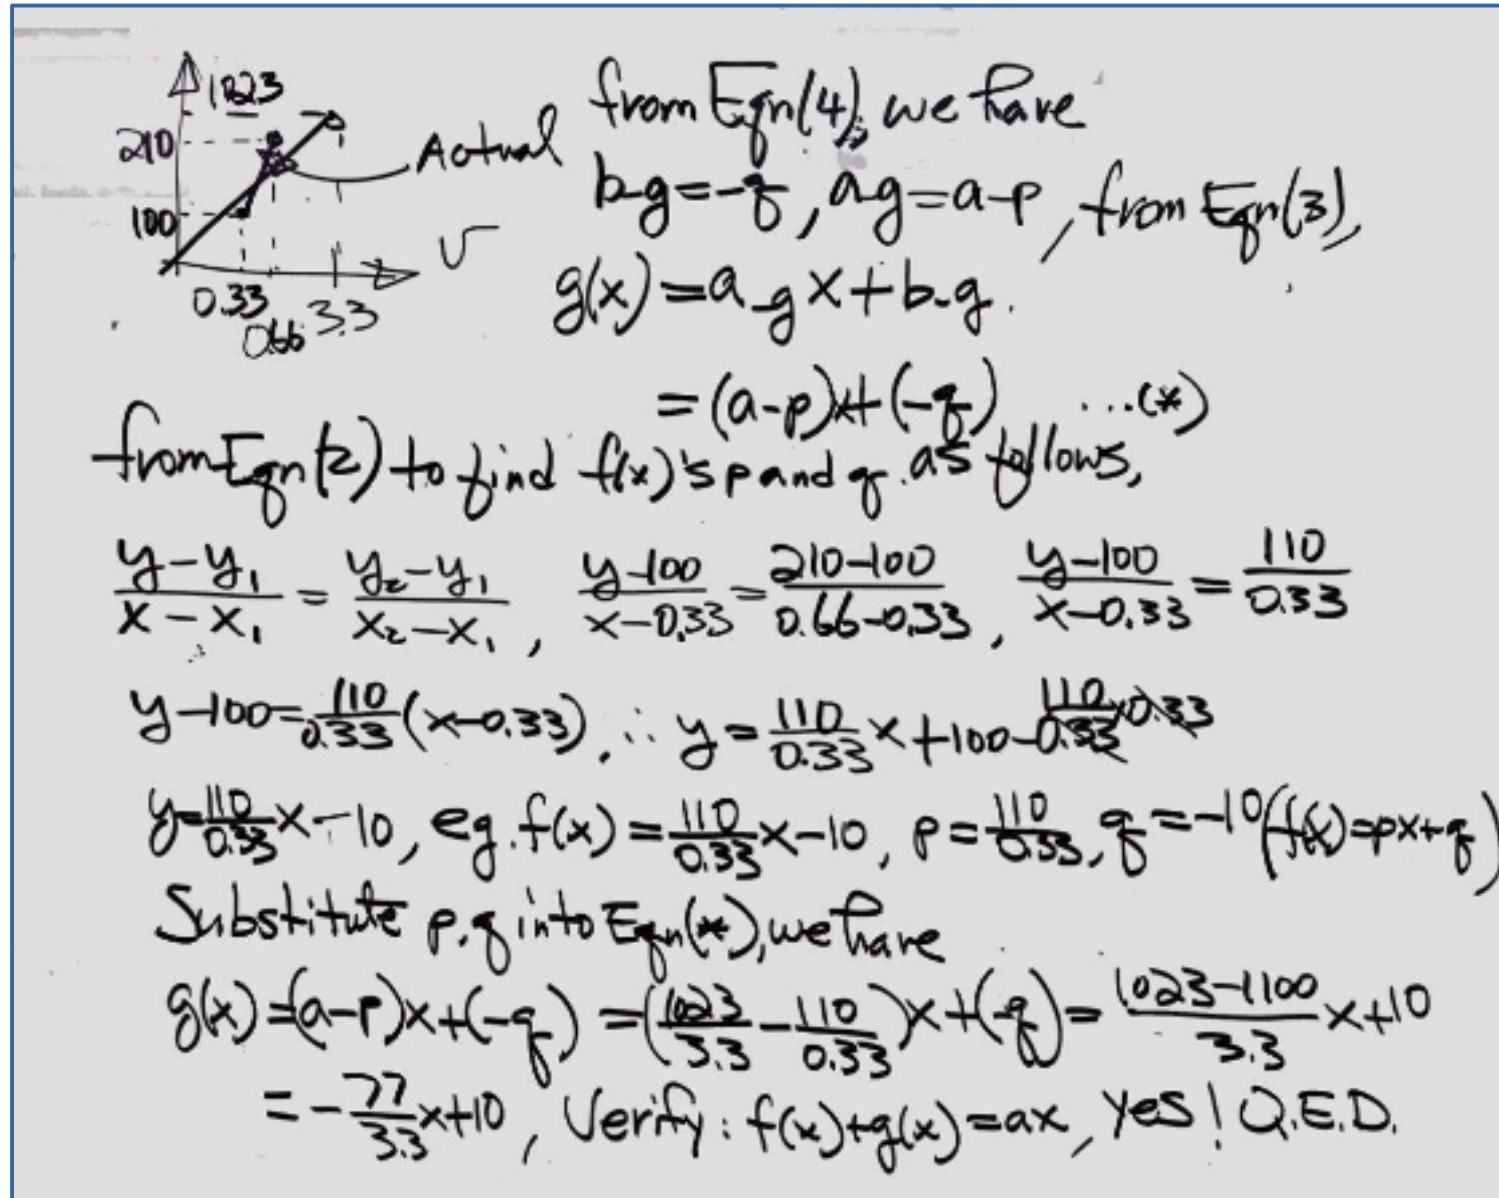 1023
210
Actual
100
V
0.33
0.66 3.3
from Eqn(4), we have
b-g=-q, a-g=a-p, from Eqn(3),
g(x)=a-g x+b-g.
=(a-p)x+(-q) ...(*)
from Eqn(2) to find f(x)'s p and q. as follows,
(y-y₁)/(x-x₁) = (y₂-y₁)/(x₂-x₁), (y-100)/(x-0.33) = (210-100)/(0.66-0.33), (y-100)/(x-0.33) = 110/0.33
y-100=110/0.33(x-0.33), ∴ y=110/0.33 x+100-110/0.33 x0.33
y=110/0.33 x-10, eg. f(x)=110/0.33 x-10, p=110/0.33, q=-10 (f(x)=px+q)
Substitute p,q into Eqn(*), we have
g(x)=(a-p)x+(-q) =(1023/3.3 - 110/0.33)x+(-q)= (1023-1100)/3.3 x+10
= -77/3.3 x+10, Verify: f(x)+g(x)=ax, yes! Q.E.D.